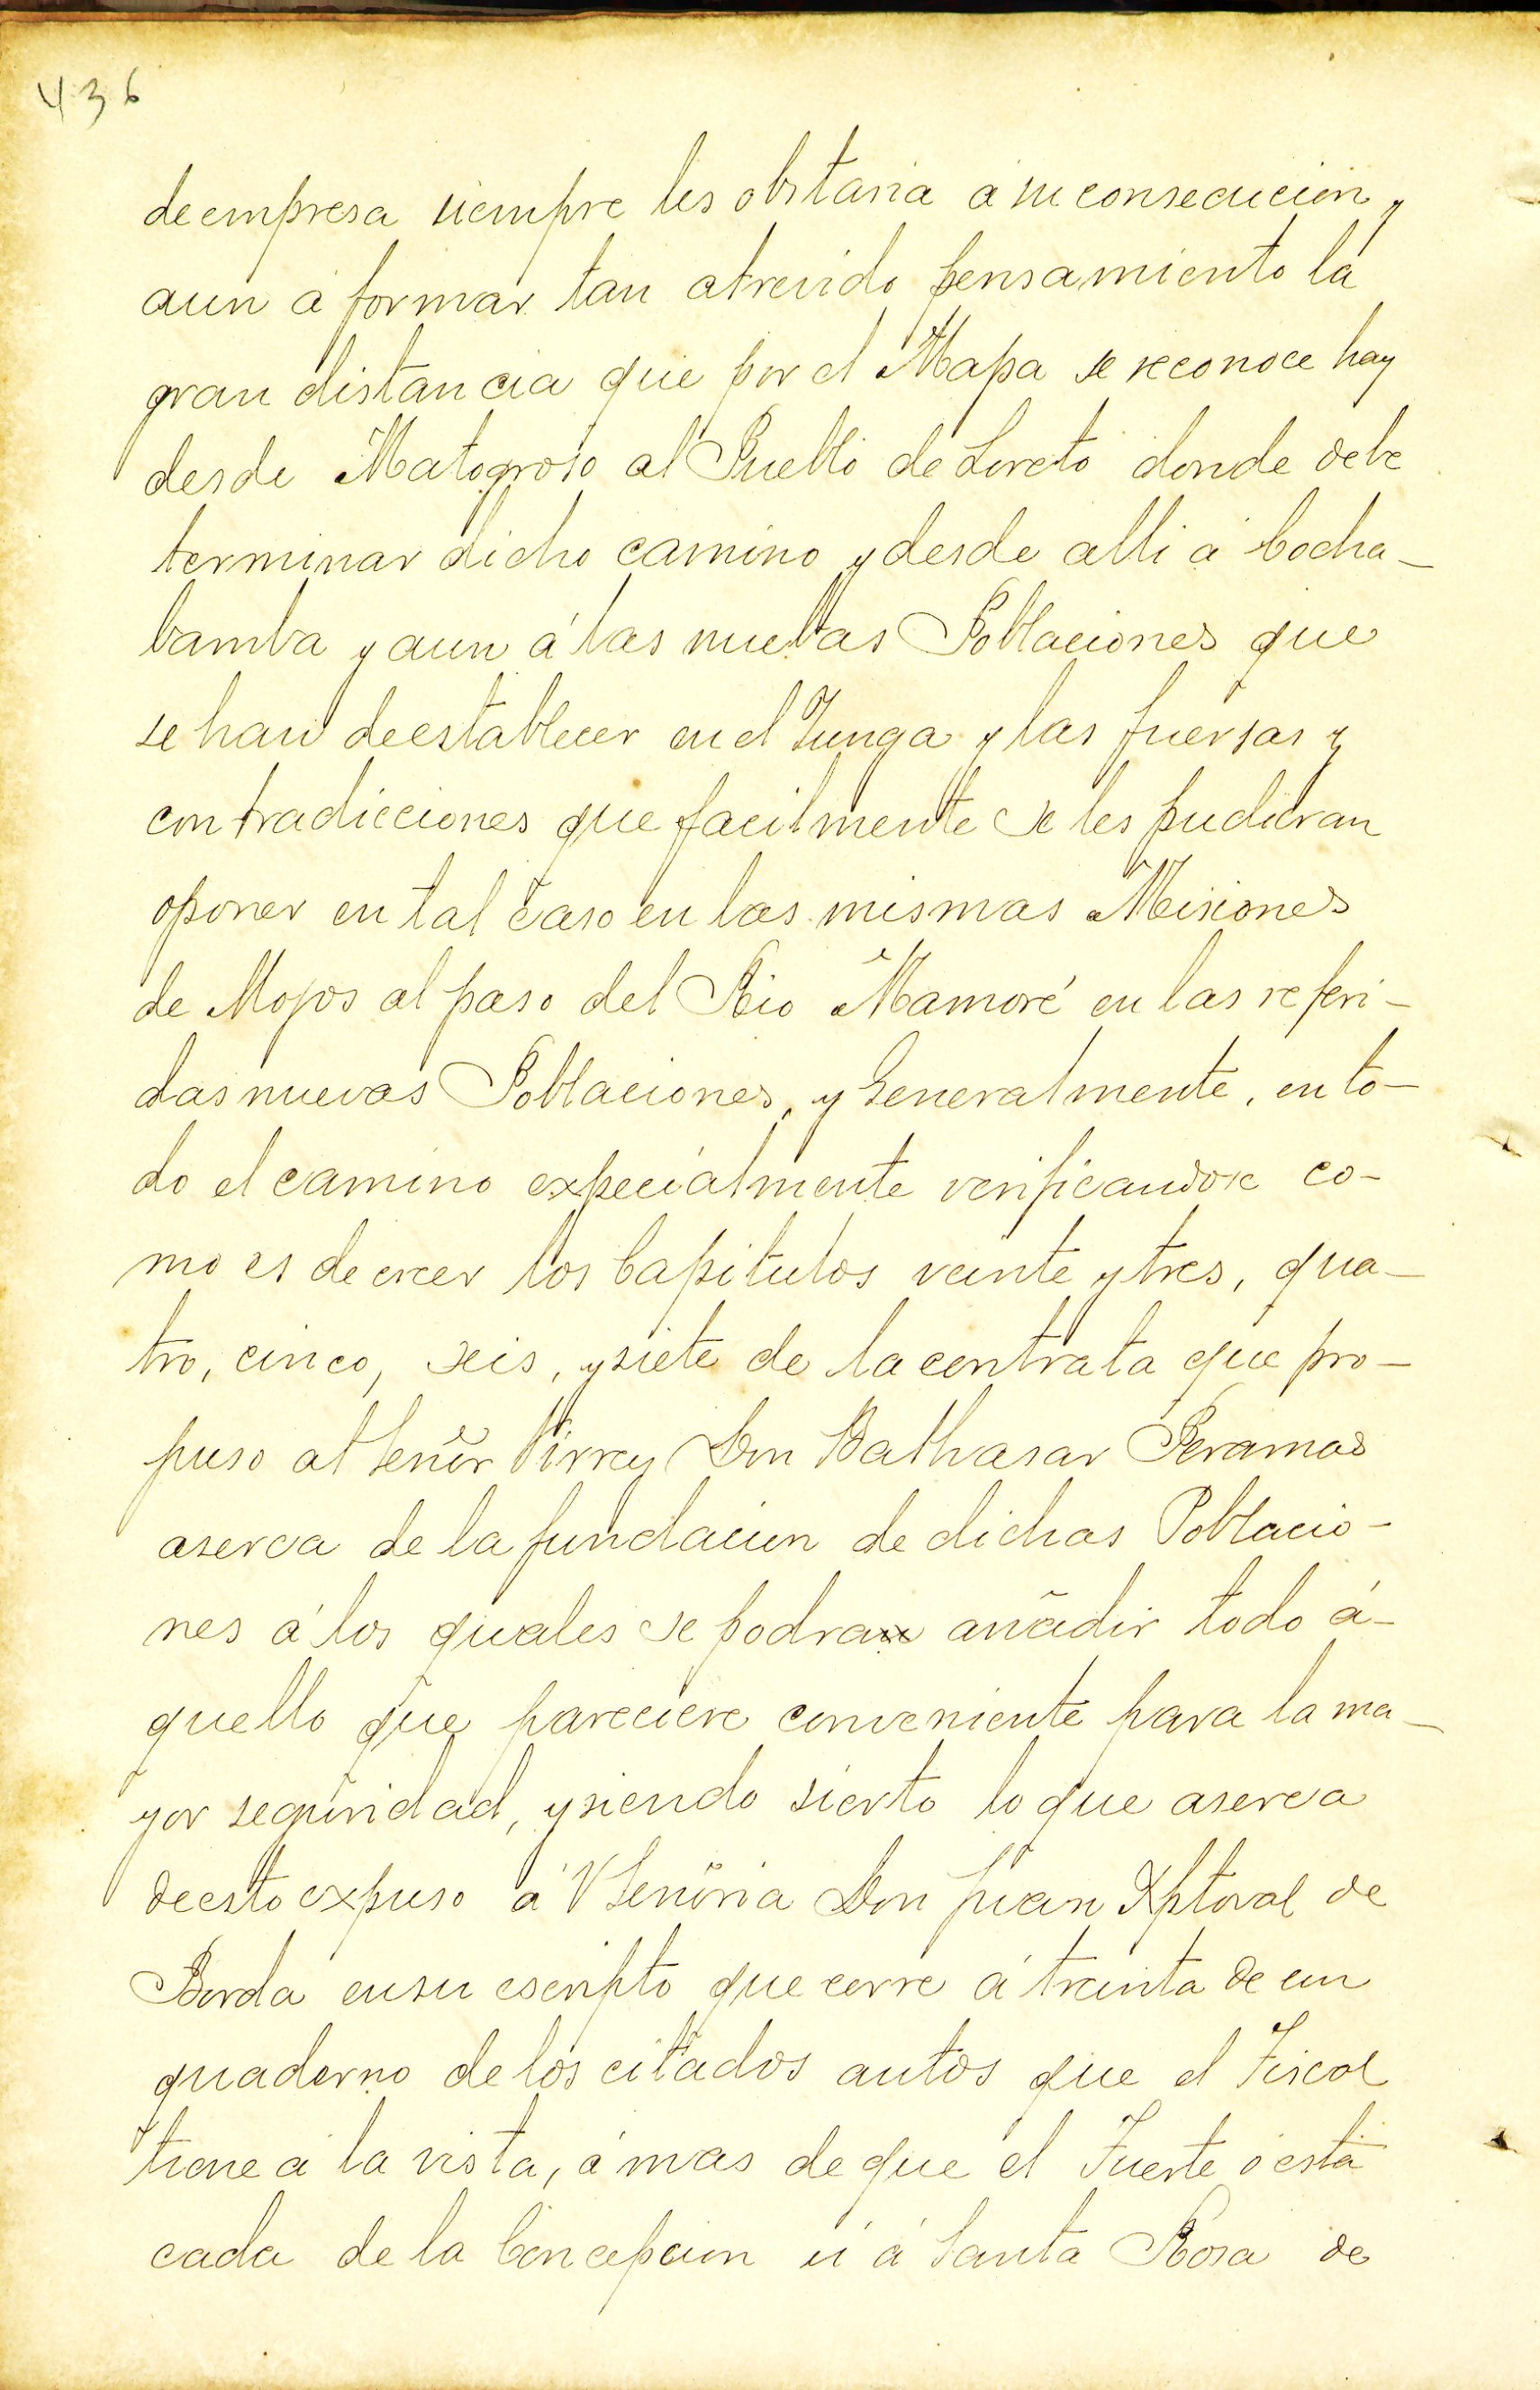 436
de empresa siempre les obstaria á su consecucion y
aun á formar tan atrevido pensamiento la
gran distancia que por el Mapa se reconoce hay
desde Matogroso al Pueblo de Loreto donde debe
terminar dicho camino y desde alli á Cocha-
bamba y aun á las nuebas Poblaciones que
se han de establecer en el Yunga y las fuersas y
contradicciones que facilmente se les pudieran
oponer en tal caso en las mismas Misiones
de Mojos al paso del Rio Mamoré en las referi-
das nuevas Poblaciones, y Generalmente, en to-
do el camino expecialmente verificandose co-
mo es de creer los Capitulos veinte y tres, qua-
tro, cinco, seis, y siete de la contrata que pro-
puso al Señor Virrey Don Balthasar Peramas
aserca de la fundacion de dichas Poblacio-
nes á los quales se podran añadir todo á-
quello que pareciere conveniente para la ma-
yor seguridad, y siendo sierto lo que aserca
de esto expuso á V Señoria Don Juan Xptoval de
Borda en su escripto que corre á treinta de un
quaderno de los citados autos que el Fiscal
tiene á la vista, á mas de que el Fuerte ó esta
cada de la Concepcion ú á Santa Rosa de